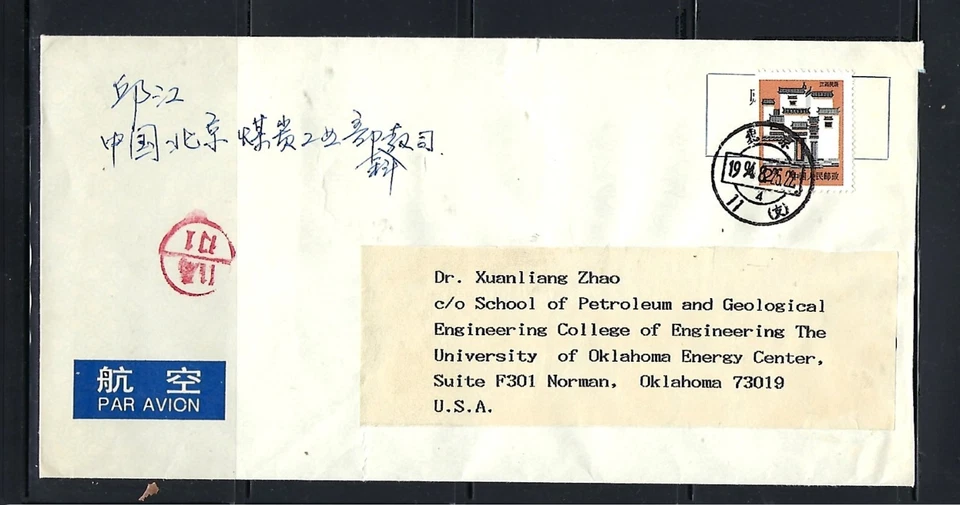 邱江
中国北京 煤炭工业部教司
科
江西民居
中国人民邮政
北京
1994.8.25.22
4
11 (支)
航空
PAR AVION
Dr. Xuanliang Zhao
c/o School of Petroleum and Geological
Engineering College of Engineering The
University of Oklahoma Energy Center,
Suite F301 Norman, Oklahoma 73019
U.S.A.